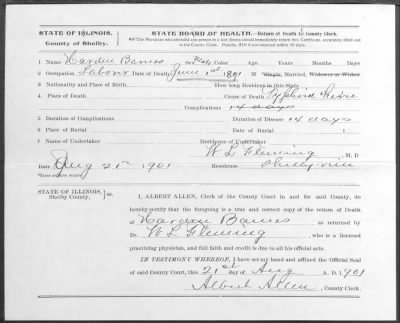 STATE OF ILLINOIS,
County of Shelby.
STATE BOARD OF HEALTH.—Return of Death to County Clerk.
1 Name Harden Barnes Sex Male Color Age Years Months Days
2 Occupation Labour Date of Death June 1st 1891 M Single, Married, Widower or Widow
3 Nationality and Place of Birth How long Resident in this State
4 Place of Death Cause of Death Typhoid Fever
Complications 14 days
5 Duration of Complications Duration of Disease 14 days
6 Place of Burial Date of Burial
7 Name of Undertaker Residence of Undertaker
W L Fleming , M. D
Date Aug 21st 1901 Residence Shelbyville
STATE OF ILLINOIS,
Shelby County, ss.
I, ALBERT ALLEN, Clerk of the County Court in and for said County, do
hereby certify that the foregoing is a true and correct copy of the return of Death
of Harden Barnes as returned by
Dr. W L Fleming , who is a licensed
practising physician, and full faith and credit is due to all his official acts.
IN TESTIMONY WHEREOF, I have set my hand and affixed the Official Seal
of said County Court, this 21st day of Aug A. D. 1901
Albert Allen, County Clerk.